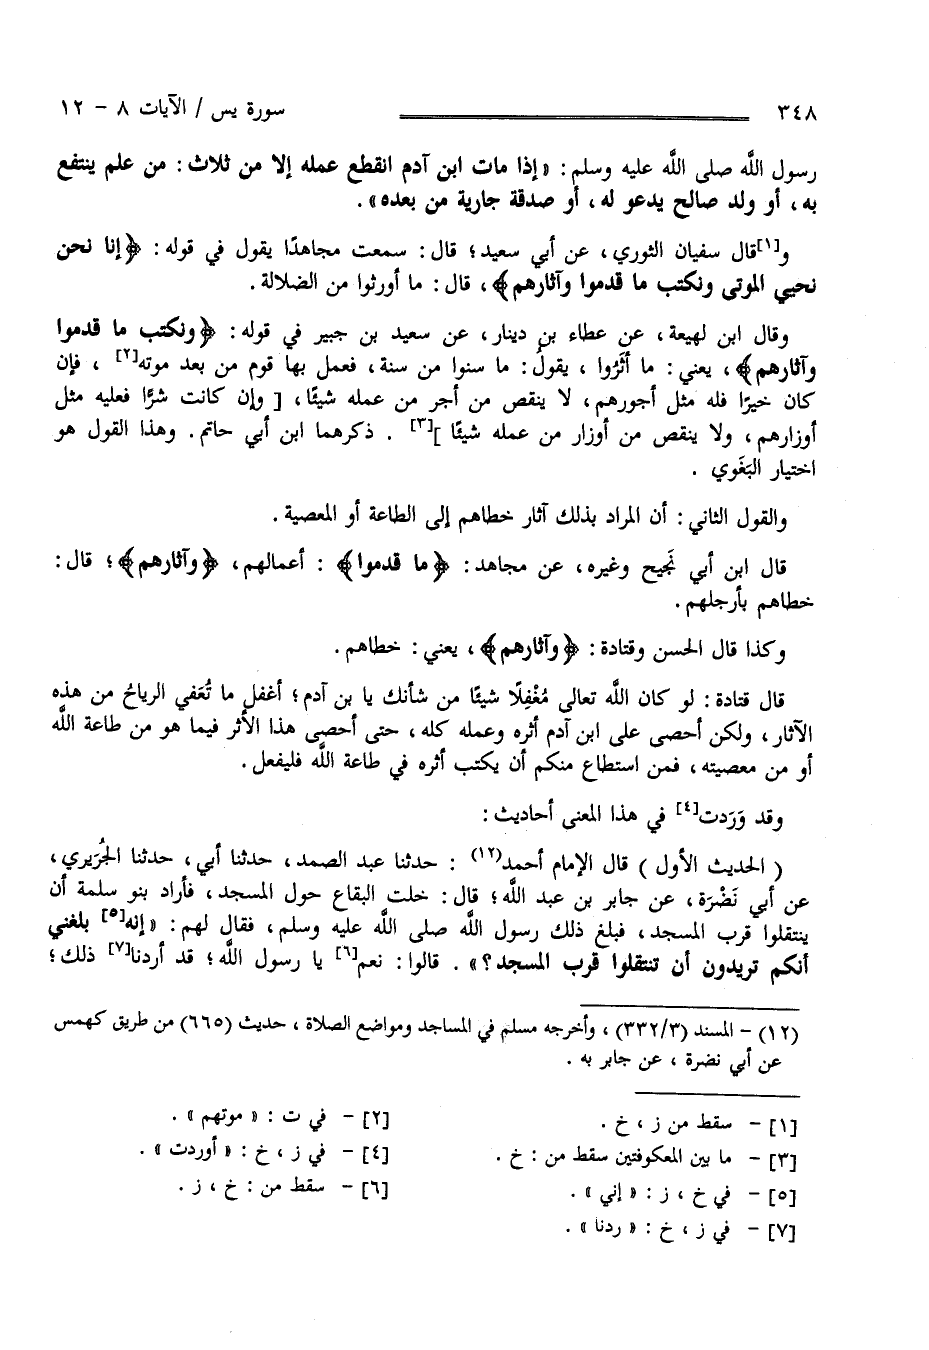 ٣٤٨ سورة يس / الآيات ٨ - ١٢
رسول اللَّه صلى اللَّه عليه وسلم : « إذا مات ابن آدم انقطع عمله إلا من ثلاث : من علم ينتفع
به ، أو ولد صالح يدعو له ، أو صدقة جارية من بعده » .
و[١]قال سفيان الثوري ، عن أبي سعيد ؛ قال : سمعت مجاهدًا يقول في قوله : ﴿ إنا نحن
نحيي الموتى ونكتب ما قدموا وآثارهم ﴾ ، قال : ما أورثوا من الضلالة .
وقال ابن لهيعة ، عن عطاء بن دينار ، عن سعيد بن جبير في قوله : ﴿ ونكتب ما قدموا
وآثارهم ﴾ ، يعني : ما أَثَرُوا ، يقول : ما سنوا من سنة ، فعمل بها قوم من بعد موته[٢] ، فإن
كان خيرًا فله مثل أجورهم ، لا ينقص من أجر من عمله شيئًا ، [ وإن كانت شرًّا فعليه مثل
أوزارهم ، ولا ينقص من أوزار من عمله شيئًا ][٣] . ذكرهما ابن أبي حاتم . وهذا القول هو
اختيار البَغَوي .
والقول الثاني : أن المراد بذلك آثار خطاهم إلى الطاعة أو المعصية .
قال ابن أبي نَجيح وغيره ، عن مجاهد : ﴿ ما قدموا ﴾ : أعمالهم ، ﴿ وآثارهم ﴾ ؛ قال :
خطاهم بأرجلهم .
وكذا قال الحسن وقتادة : ﴿ وآثارهم ﴾ ، يعني : خطاهم .
قال قتادة : لو كان اللَّه تعالى مُغْفِلًا شيئًا من شأنك يا بن آدم ؛ أغفل ما تُعَفي الرياحُ من هذه
الآثار ، ولكن أحصى على ابن آدم أثره وعمله كله ، حتى أحصى هذا الأثر فيما هو من طاعة اللَّه
أو من معصيته ، فمن استطاع منكم أن يكتب أثره في طاعة اللَّه فليفعل .
وقد وَرَدت[٤] في هذا المعنى أحاديث :
( الحديث الأول ) قال الإمام أحمد(١٢) : حدثنا عبد الصمد ، حدثنا أبي ، حدثنا الجُرَيري ،
عن أبي نَضْرَة ، عن جابر بن عبد اللَّه ؛ قال : خلت البقاع حول المسجد ، فأراد بنو سلمة أن
ينتقلوا قرب المسجد ، فبلغ ذلك رسول اللَّه صلى اللَّه عليه وسلم ، فقال لهم : « إنه[٥] بلغني
أنكم تريدون أن تنتقلوا قرب المسجد ؟ » . قالوا : نعم[٦] يا رسول اللَّه ؛ قد أردنا[٧] ذلك ؛
(١٢) - المسند (٣٣٢/٣) ، وأخرجه مسلم في المساجد ومواضع الصلاة ، حديث (٦٦٥) من طريق كهمس
عن أبي نضرة ، عن جابر به .
[١] - سقط من ز ، خ . [٢] - في ت : « موتهم » .
[٣] - ما بين المعكوفتين سقط من : خ . [٤] - في ز ، خ : « أوردت » .
[٥] - في خ ، ز : « إني » . [٦] - سقط من : خ ، ز .
[٧] - في ز ، خ : « ردنا » .